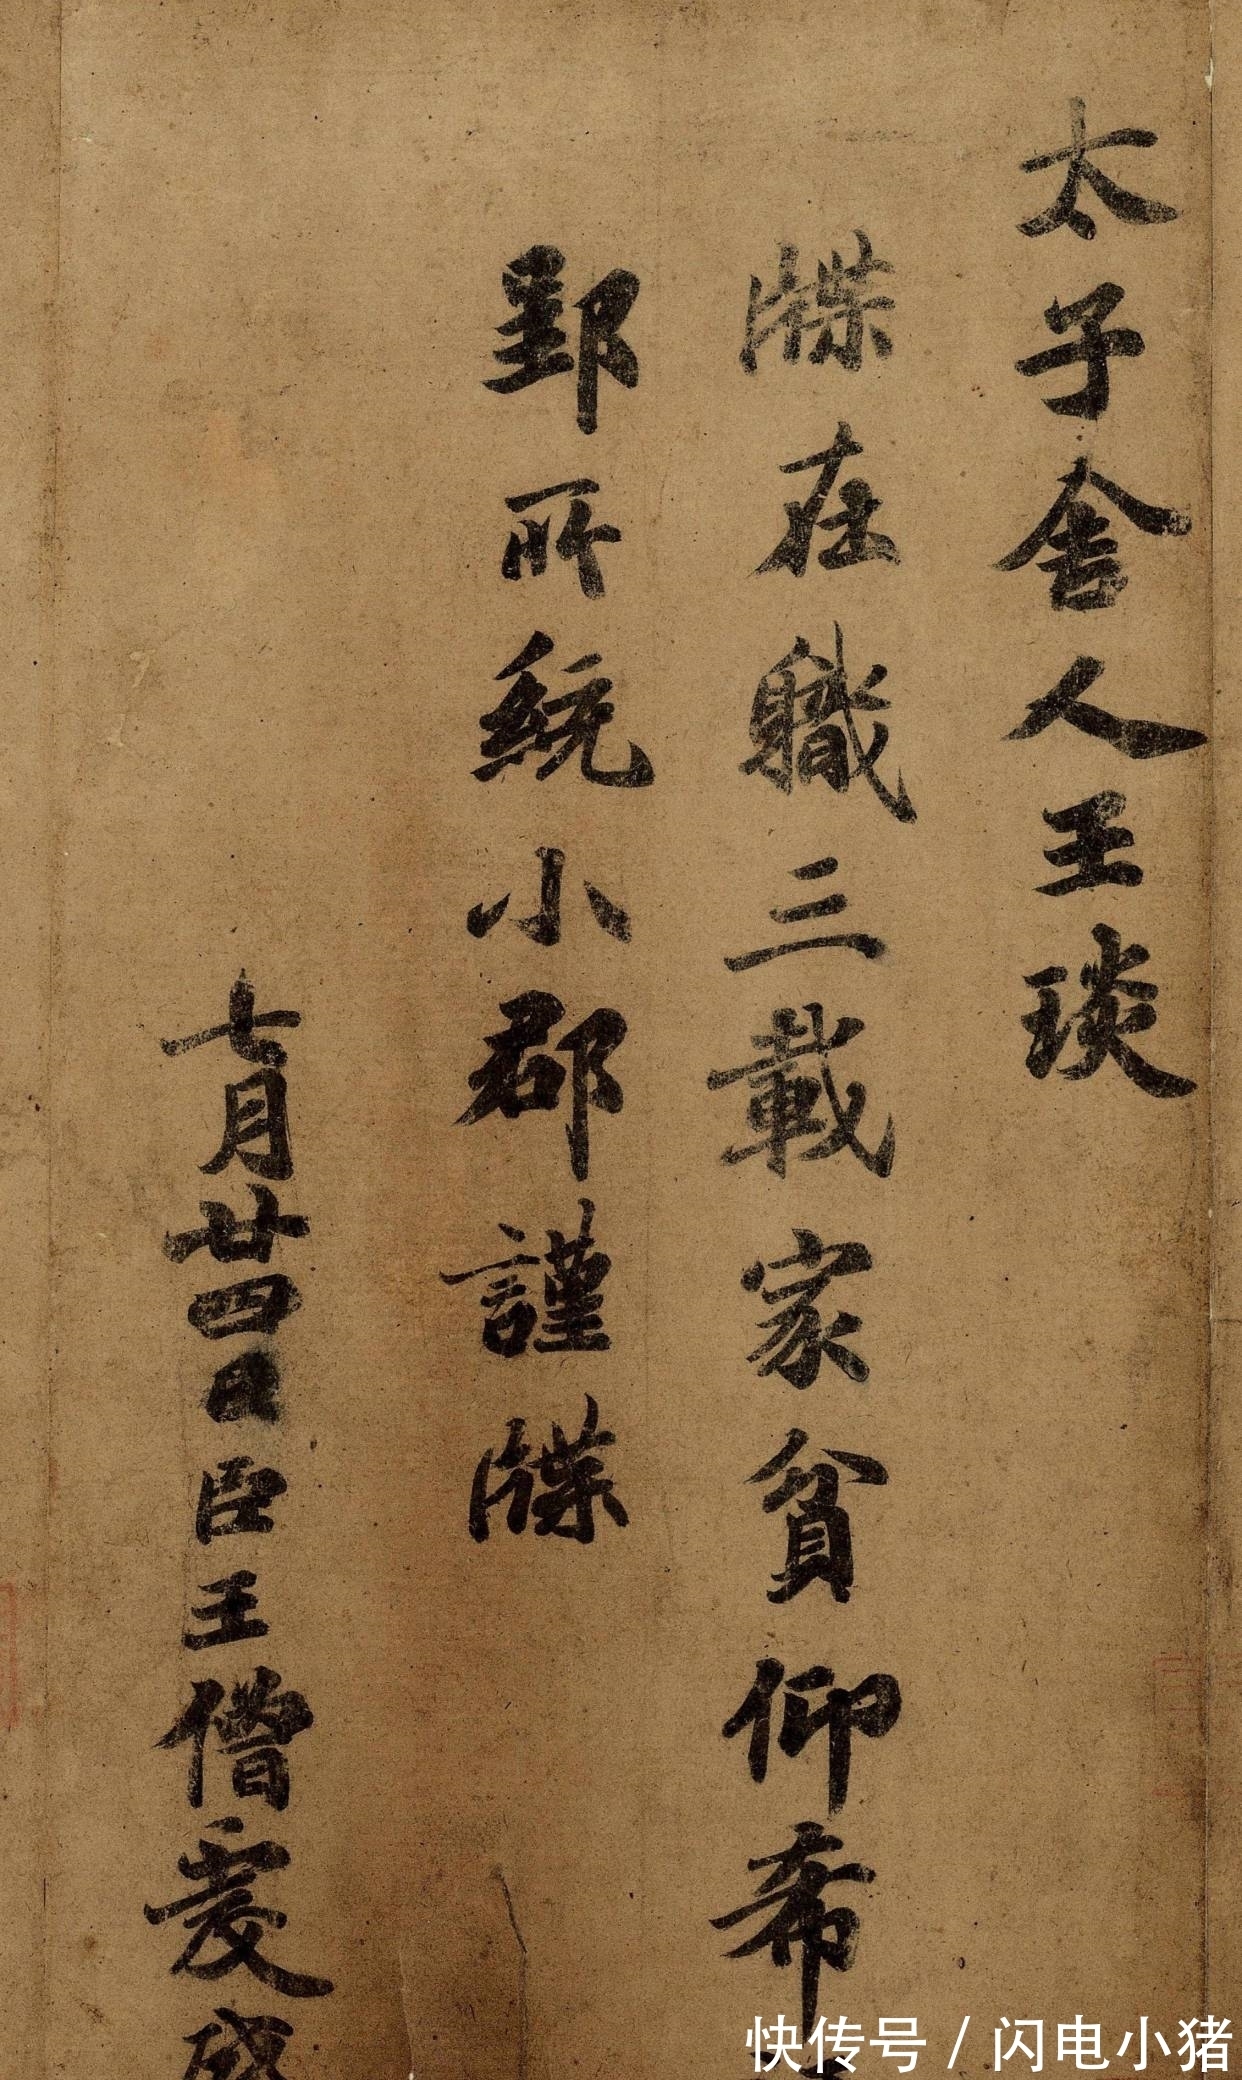 太子舍人王琰
牒在職三載家貧仰希
郢所統小郡謹牒
七月廿四日臣王僧虔
快传号 / 闪电小猪